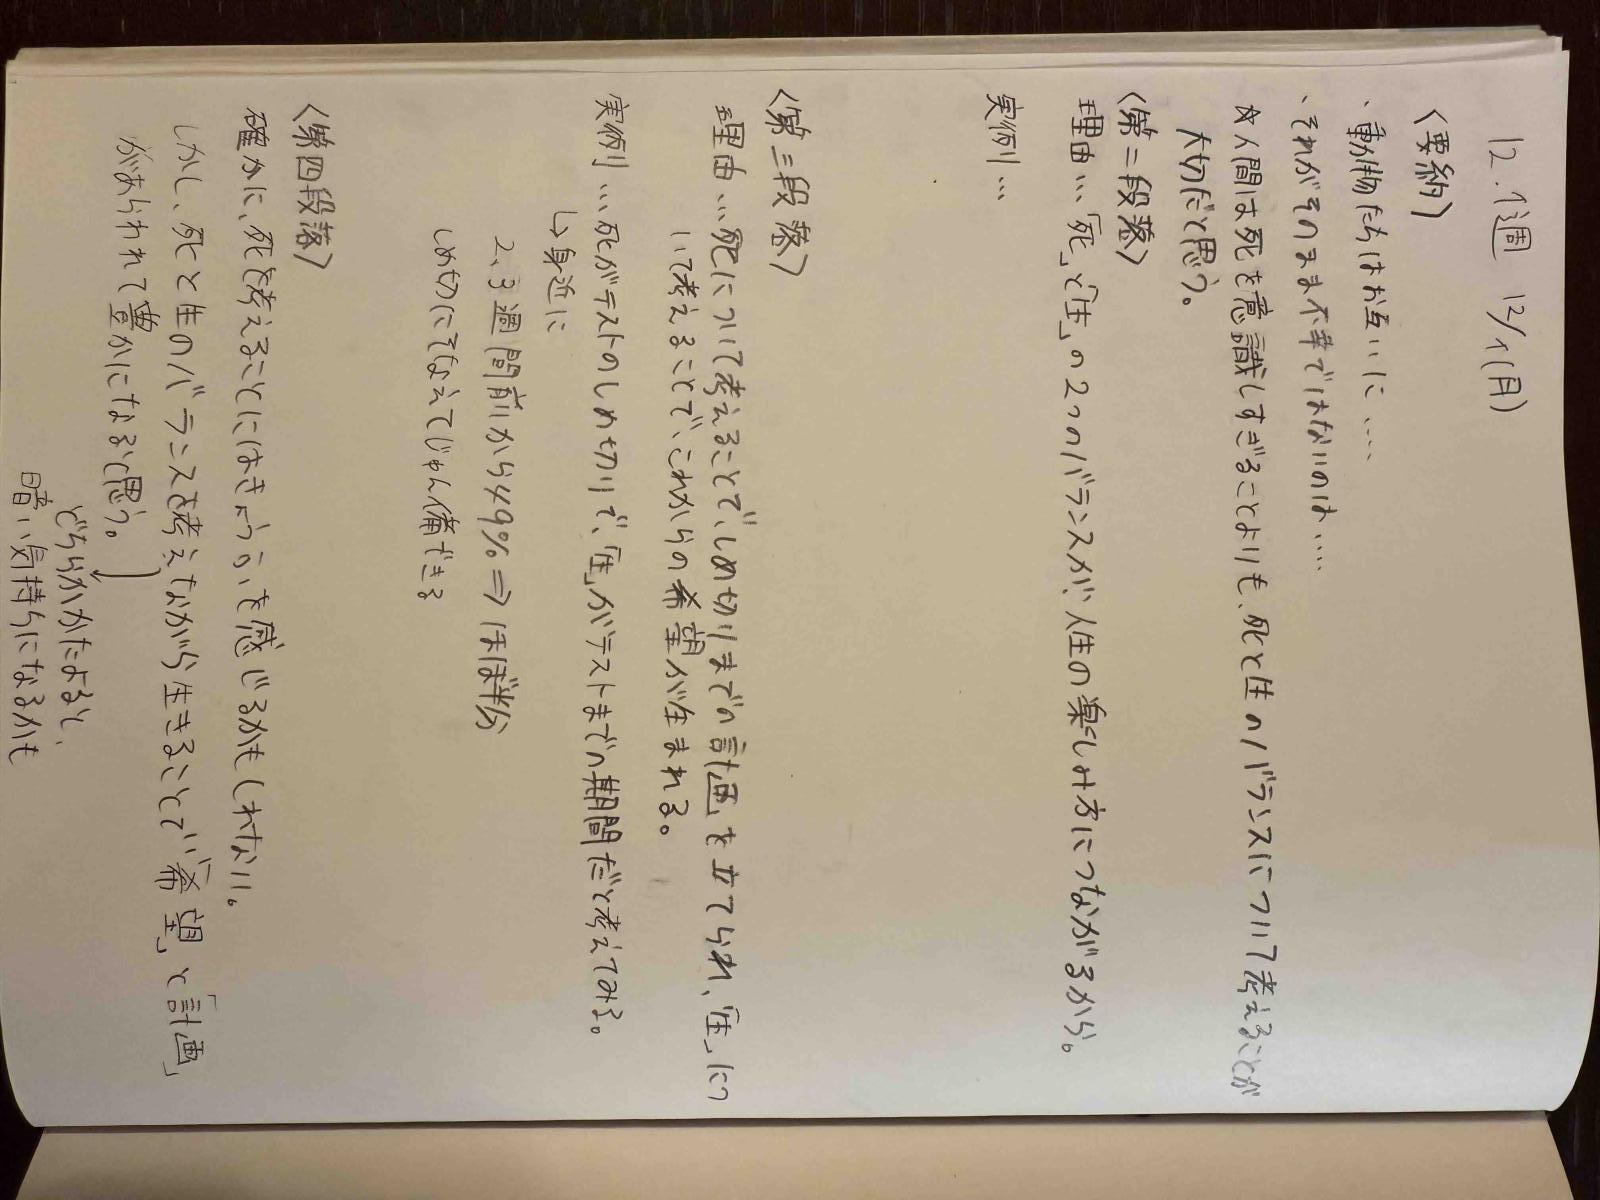 12.1週 12/1(月)
〈要約〉
・動物たちはお互いに……
・それがそのまま不幸ではないのは……
☆人間は死を意識しすぎることよりも、死と生のバランスについて考えることが
大切だと思う。
〈第二段落〉
理由…「死」と「生」の2つのバランスが、人生の楽しみ方につながるから。
実例…
〈第三段落〉
理由…死について考えることで、しめ切りまでの計画を立てられ、「生」につ
いて考えることで、これからの希望が生まれる。
実例…死がテストのしめ切りで、「生」がテストまでの期間だと考えてみる。
↳身近に
2、3週間前から49%⇒ほぼ半分
しめ切にそなえてじゅん備できる
〈第四段落〉
確かに、死を考えることにはきょうふを感じるかもしれない。
しかし、死と生のバランスを考えながら生きることで、「希望」と「計画」
があらわれて豊かになると思う。
どちらかかたよると、
暗い気持ちになるかも